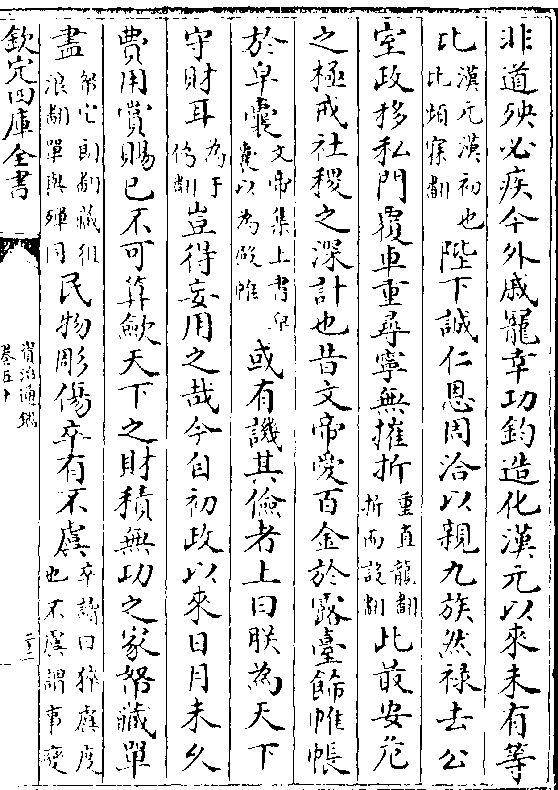 非道殃必疾今外戚寵幸功鈞造化漢元以來未有等
比漢元漢初也比頻寐翻陛下誠仁恩周洽以親九族然祿去公
室政移私門覆車重尋寧無摧折重直龍翻折而設翻此最安危
之極戒社稷之深計也昔文帝愛百金於露臺飾帷帳
於皁囊文帝集上書皁囊以為殿帷或有譏其儉者上曰朕為天下
守財耳為于偽翻豈得妄用之哉今自初政以來日月未久
費用賞賜已不可算歛天下之財積無功之家帑藏單
盡帑它朗翻藏徂浪翻單與殫同民物彫傷卒有不虞卒讀曰猝虞度也不虞謂事變
欽定四庫全書
資治通鑑
卷五十